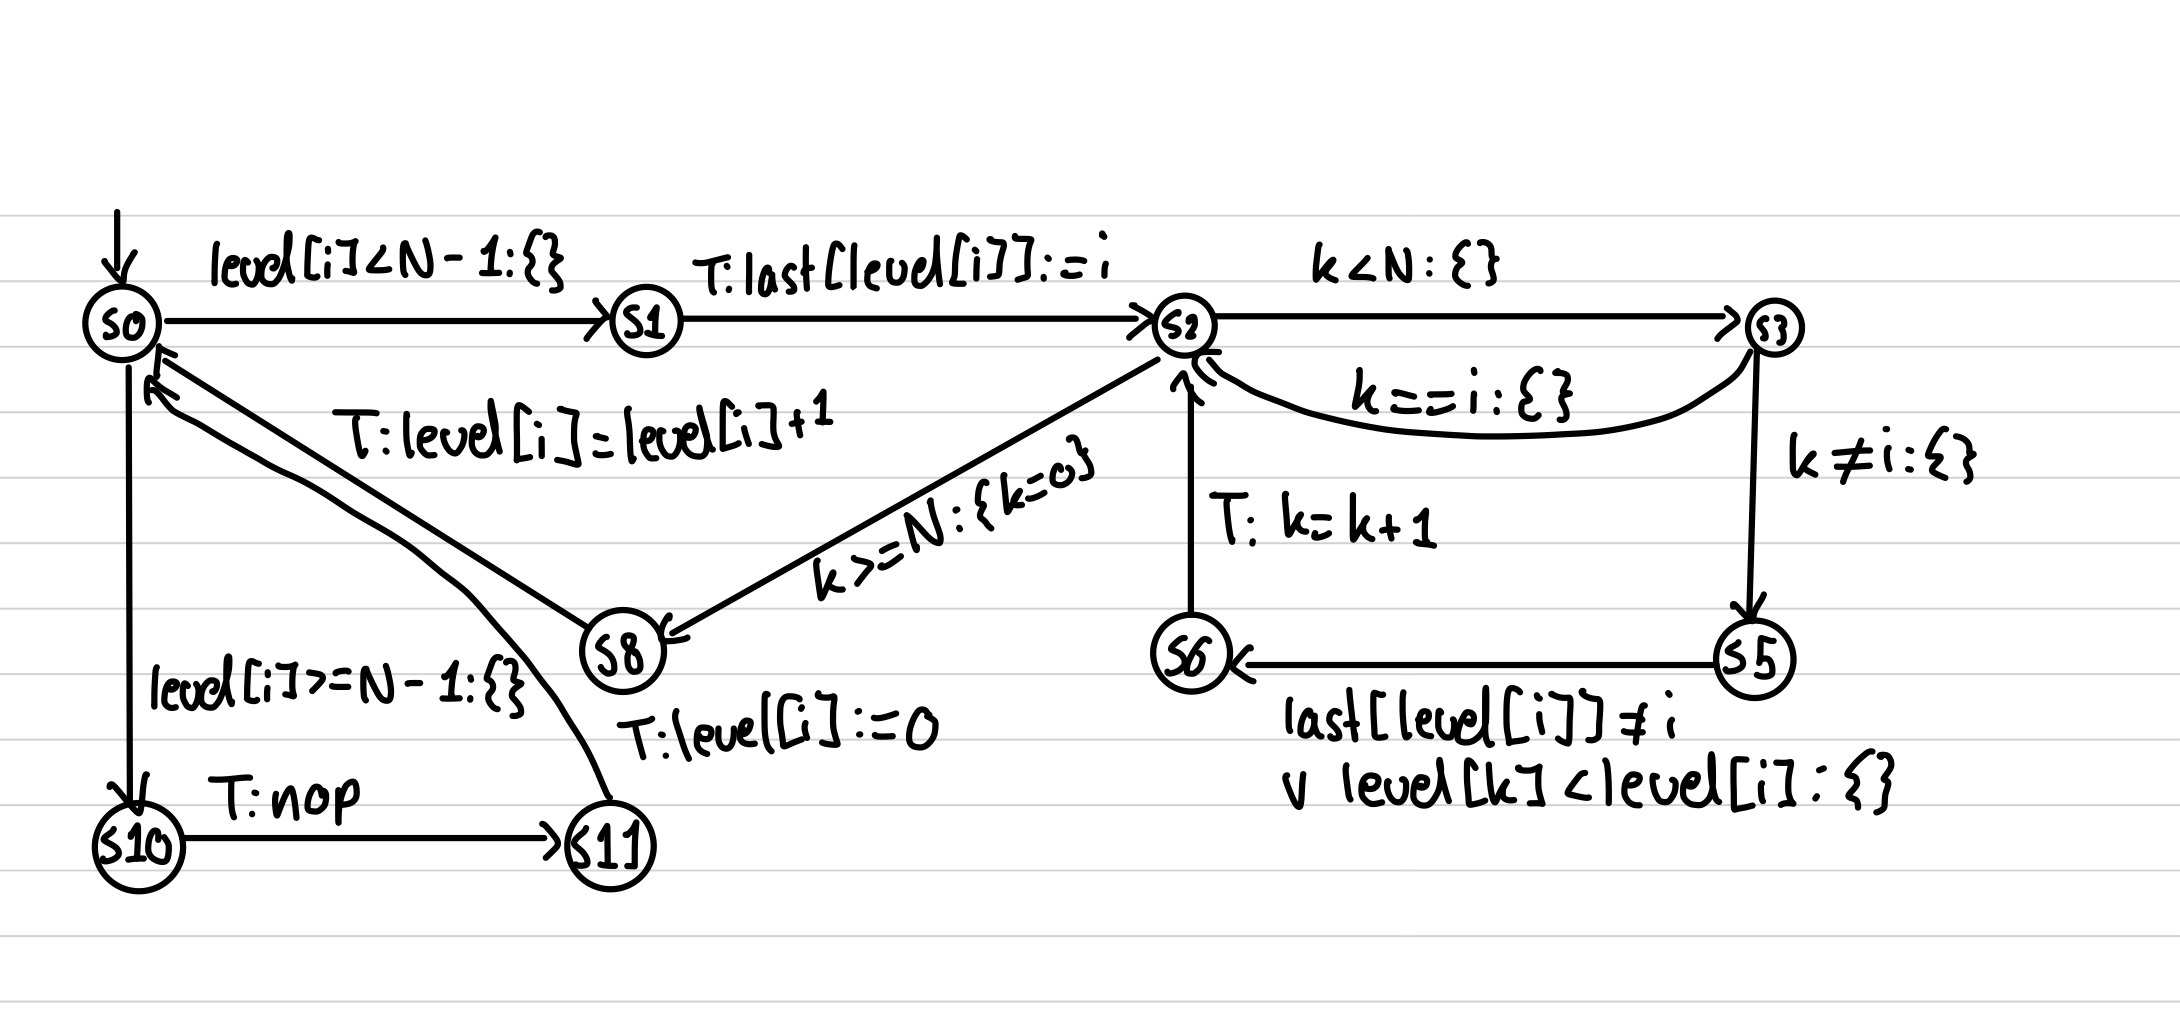 level[i]<N-1:{}
T:last[level[i]]:=i
k<N:{}
S0
S1
S2
S3
k==i:{}
T:level[i]=level[i]+1
k≠i:{}
k>=N:{k=0}
T: k=k+1
S8
S6
S5
level[i]>=N-1:{}
T:level[i]:=0
last[level[i]]≠i
∨ level[k]<level[i]:{}
T:nop
S10
S11